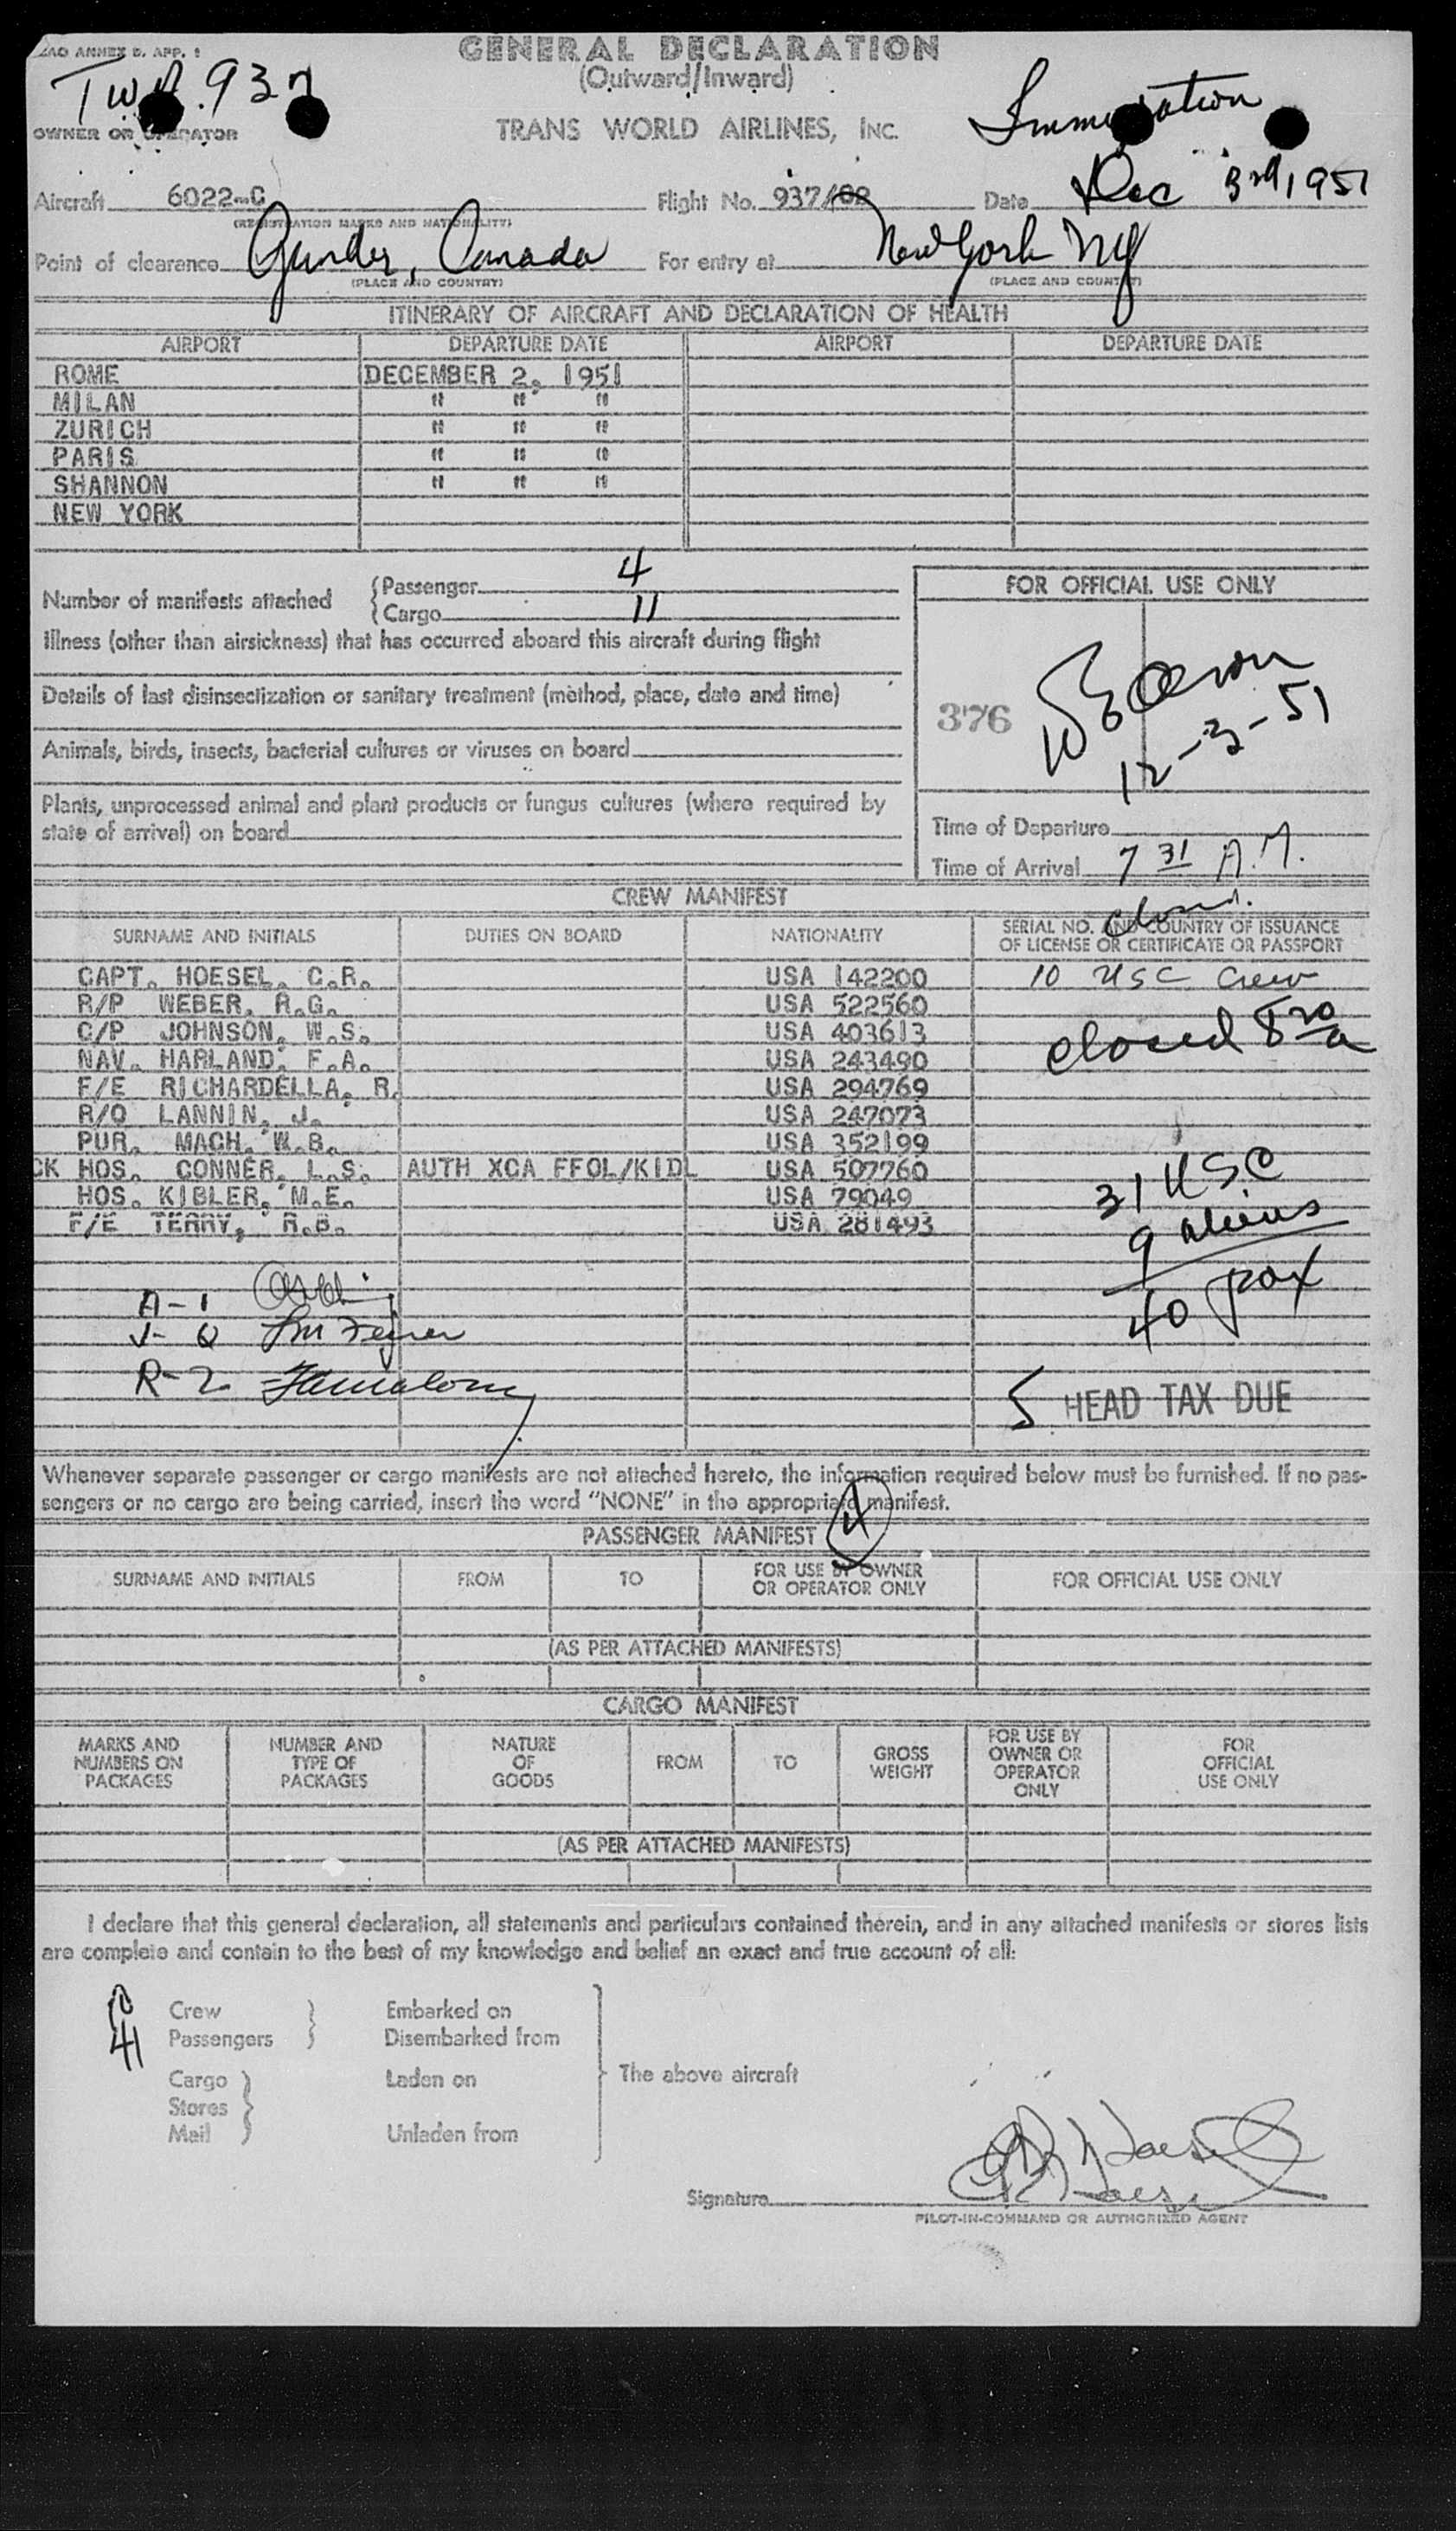 ICAO ANNEX 9. APP. 1
GENERAL DECLARATION
(Outward/Inward)
TWA.937
OWNER OR OPERATOR
TRANS WORLD AIRLINES, INC.
Immigration
Aircraft 6022-C
Flight No. 937/02
Date Dec 3rd 1951
(REGISTRATION MARKS AND NATIONALITY)
Point of clearance Gander, Canada
For entry at New York NY
(PLACE AND COUNTRY) (PLACE AND COUNTRY)
ITINERARY OF AIRCRAFT AND DECLARATION OF HEALTH
AIRPORT DEPARTURE DATE AIRPORT DEPARTURE DATE
ROME DECEMBER 2, 1951
MILAN " " "
ZURICH " " "
PARIS " " "
SHANNON " " "
NEW YORK
Number of manifests attached
{Passenger 4
{Cargo 11
Illness (other than airsickness) that has occurred aboard this aircraft during flight
Details of last disinsectization or sanitary treatment (method, place, date and time)
Animals, birds, insects, bacterial cultures or viruses on board
Plants, unprocessed animal and plant products or fungus cultures (where required by
state of arrival) on board
FOR OFFICIAL USE ONLY
376
12-3-51
Time of Departure
Time of Arrival 7 31 A.M.
CREW MANIFEST
SURNAME AND INITIALS DUTIES ON BOARD NATIONALITY
SERIAL NO. AND COUNTRY OF ISSUANCE
OF LICENSE OR CERTIFICATE OR PASSPORT
CAPT. HOESEL, C.R. USA 142200 10 USC Crew
R/P WEBER, R.G. USA 522560
C/P JOHNSON, W.S. USA 403613
closed 8 20 a
NAV. HARLAND, F.A. USA 243490
F/E RICHARDELLA, R. USA 294769
R/O LANNIN, J. USA 247073
PUR. MACH, W.B. USA 352199
CK HOS. CONNER, L.S. AUTH XCA FFOL/KIDL USA 507760
HOS. KIBLER, M.E. USA 79049
F/E TERRY, R.B. USA 281493
31 USC
9 aliens
40 pax
A-1
V-0
R-2
5 HEAD TAX DUE
Whenever separate passenger or cargo manifests are not attached hereto, the information required below must be furnished. If no pas-
sengers or no cargo are being carried, insert the word "NONE" in the appropriate manifest.
PASSENGER MANIFEST 4
SURNAME AND INITIALS FROM TO
FOR USE BY OWNER
OR OPERATOR ONLY
FOR OFFICIAL USE ONLY
(AS PER ATTACHED MANIFESTS)
CARGO MANIFEST
MARKS AND
NUMBERS ON
PACKAGES
NUMBER AND
TYPE OF
PACKAGES
NATURE
OF
GOODS
FROM
TO
GROSS
WEIGHT
FOR USE BY
OWNER OR
OPERATOR
ONLY
FOR
OFFICIAL
USE ONLY
(AS PER ATTACHED MANIFESTS)
I declare that this general declaration, all statements and particulars contained therein, and in any attached manifests or stores lists
are complete and contain to the best of my knowledge and belief an exact and true account of all:
10 Crew } Embarked on
41 Passengers } Disembarked from
Cargo } Laden on
The above aircraft
Stores
Mail } Unladen from
Signature CR Hoesel
PILOT-IN-COMMAND OR AUTHORIZED AGENT